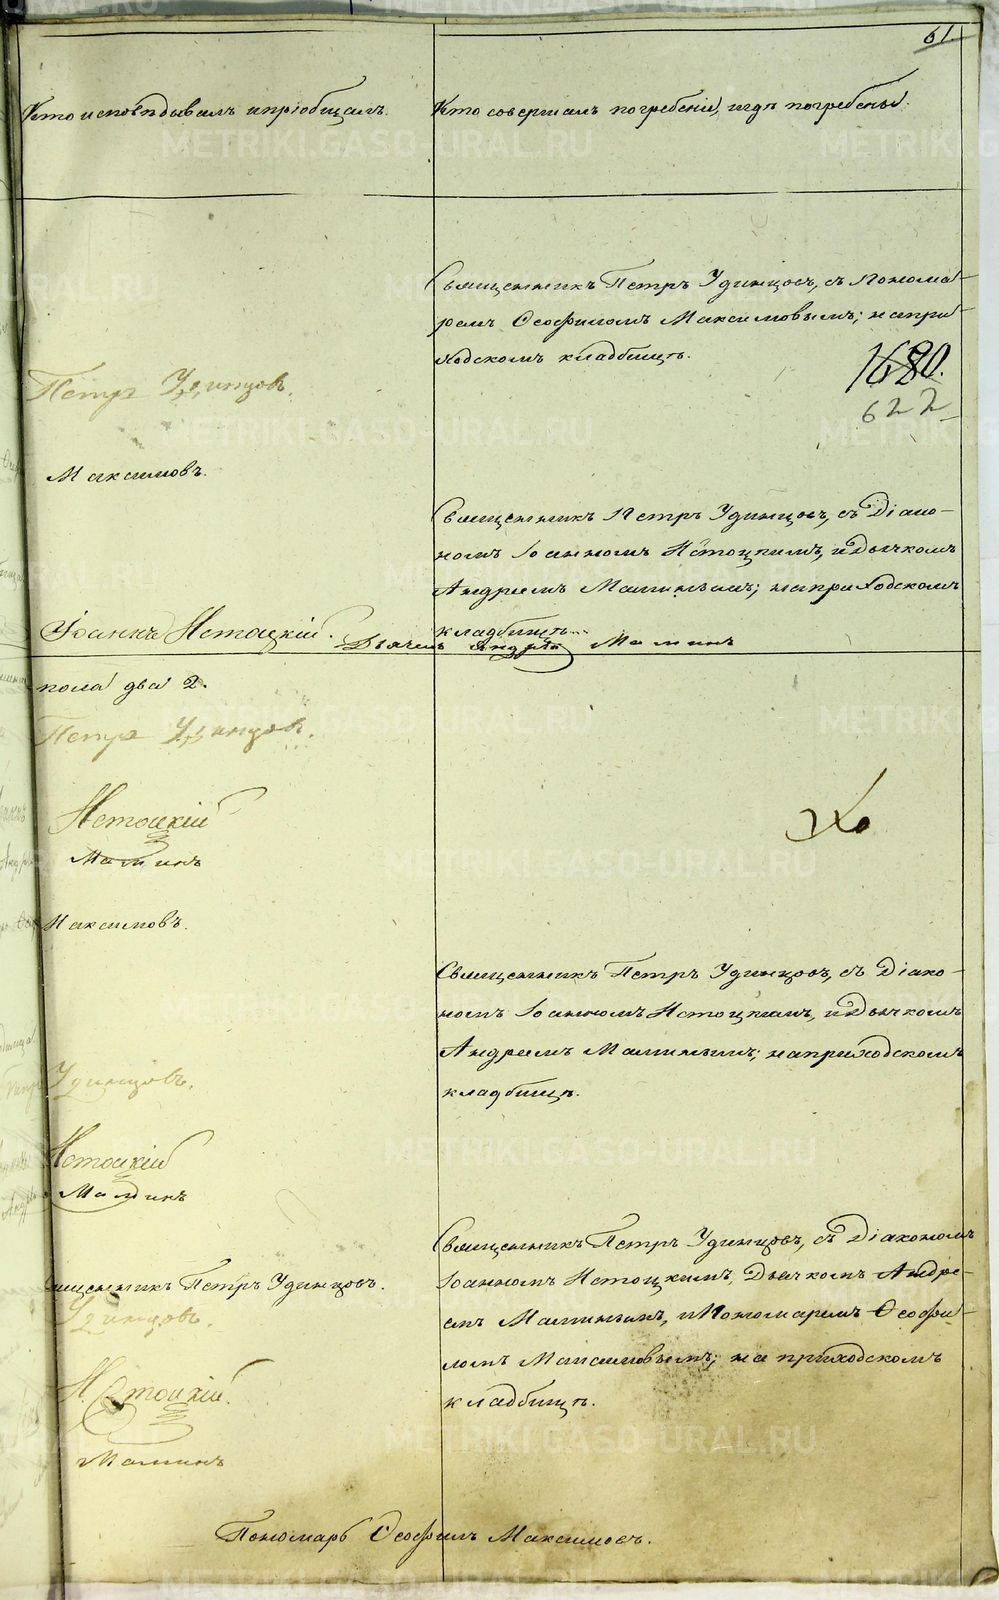 61.
Кто исповѣдывалъ и пріобщалъ.
Кто совершалъ погребеніе, и гдѣ погребены.
Священникъ Петръ Удинцовъ, съ Понома-
ремъ Ѳеофиломъ Максимовымъ; на при-
ходскомъ кладбищѣ.
1680.
622
Петръ Удинцовъ.
Максимовъ.
Священникъ Петръ Удинцовъ, съ Діако-
номъ Іоанномъ Истоцкимъ, и Дьячкомъ
Андреемъ Малинымъ; на приходскомъ
кладбищѣ.
Іоаннъ Истоцкій.
Дьячекъ Андрей Малинъ
пола два 2.
Петръ Удинцовъ.
Истоцкій
Малинъ
Максимовъ.
Священникъ Петръ Удинцовъ, съ Діако-
номъ Іоанномъ Истоцкимъ, и Дьячкомъ
Андреемъ Малинымъ; на приходскомъ
кладбищѣ.
Удинцовъ.
Истоцкій
Малинъ
Священникъ Петръ Удинцовъ, съ Діакономъ
Іоанномъ Истоцкимъ, Дьячкомъ Андре-
емъ Малинымъ, и Пономаремъ Ѳеофи-
ломъ Максимовымъ; на приходскомъ
кладбищѣ.
щенникъ Петръ Удинцовъ.
Удинцовъ.
Истоцкій.
Малинъ
Пономарь Ѳеофилъ Максимовъ.
METRIKI.GASO-URAL.RU